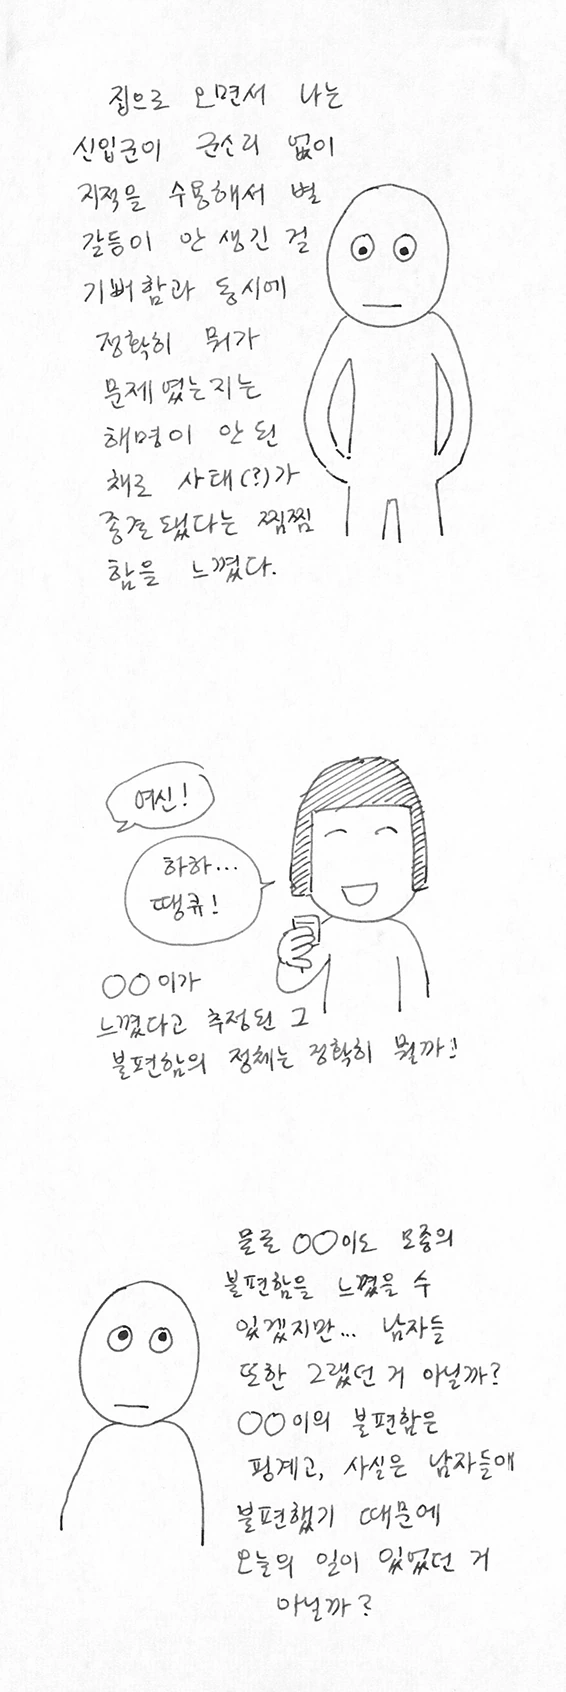 집으로 오면서 나는
신입군이 군소리 없이
지적을 수용해서 별
갈등이 안 생긴 걸
기뻐함과 동시에
정확히 뭐가
문제였는지는
해명이 안 된
채로 사태(?)가
종결됐다는 찜찜
함을 느꼈다.
여신!
하하...
땡큐!
○○이가
느꼈다고 추정된 그
불편함의 정체는 정확히 뭘까?
물론 ○○이도 모종의
불편함을 느꼈을 수
있겠지만... 남자들
또한 그랬던 거 아닐까?
○○이의 불편함은
핑계고, 사실은 남자들이
불편했기 때문에
오늘의 일이 있었던 거
아닐까?